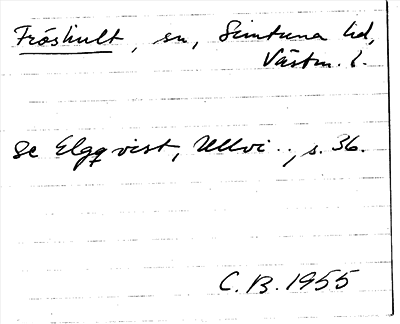 Fröshult, sn, Simtuna hd,
Västm. l.
Se Elgqvist, Ullvi.., s. 36.
C.B. 1955